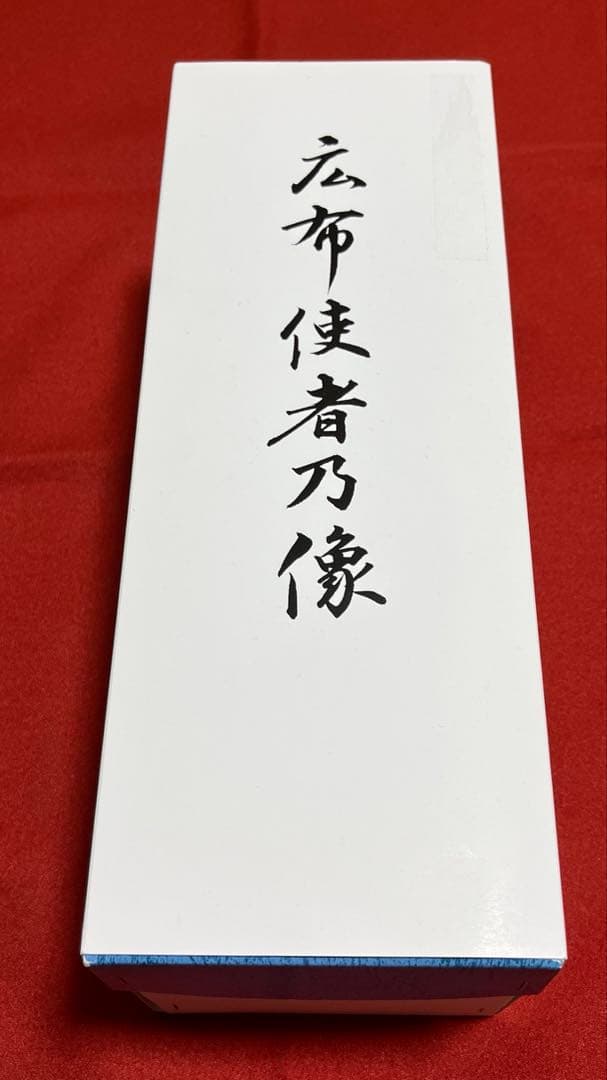 広布使者乃像